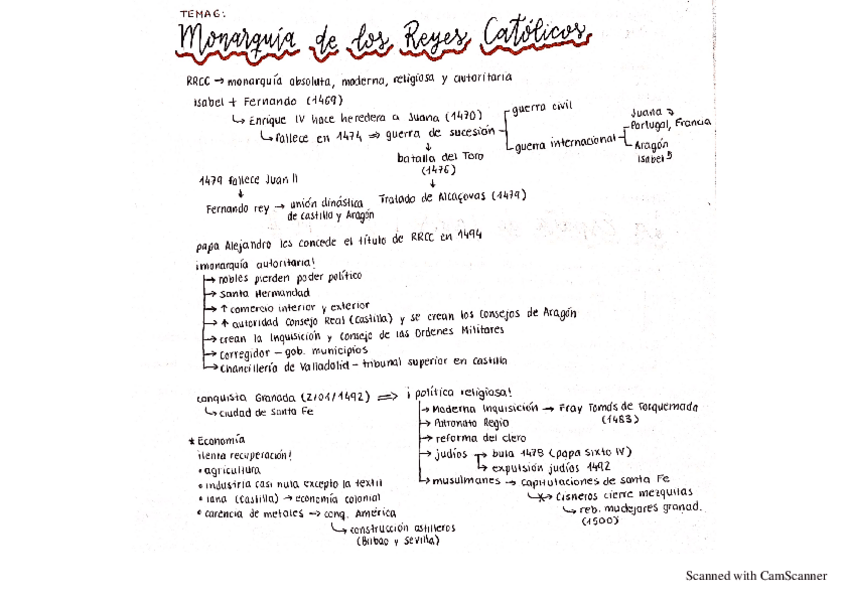 TEMA 6:
Monarquía de los Reyes Católicos
RRCC → monarquía absoluta, moderna, religiosa y autoritaria
Isabel + Fernando (1469)
↳ Enrique IV hace heredera a Juana (1470)
↳ fallece en 1474 ⇒ guerra de sucesión
guerra civil
guerra internacional
Juana →
Portugal, Francia
Aragón
Isabel
↓
batalla del Toro
(1476)
↓
Tratado de Alcaçovas (1479)
1479 fallece Juan II
↓
Fernando rey → unión dinástica
de castilla y Aragón
papa Alejandro les concede el título de RRCC en 1494
¡monarquía autoritaria!
→ nobles pierden poder político
→ Santa Hermandad
→ ↑ comercio interior y exterior
→ ↑ autoridad Consejo Real (Castilla) y se crean los Consejos de Aragón
→ crean la Inquisición y Consejo de las Ordenes Militares
→ corregidor - gob. municipios
→ Chancillería de Valladolid - tribunal superior en castilla
conquista Granada (2/01/1492) ⇒ ¡política religiosa!
↳ ciudad de Santa Fe
→ Moderna Inquisición → Fray Tomás de Torquemada
(1483)
→ Patronato Regio
→ reforma del clero
→ judíos → bula 1478 (papa Sixto IV)
↳ expulsión judíos 1492
→ musulmanes → capitulaciones de santa Fe
↳ Cisneros cierre mezquitas
↳ reb. mudejares granad.
(1500)
* Economía
¡lenta recuperación!
• agricultura
• industria casi nula excepto la textil
• lana (Castilla) → economía colonial
• carencia de metales → conq. América
↳ construcción astilleros
(Bilbao y Sevilla)
Scanned with CamScanner